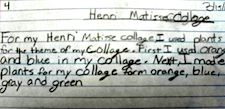 4
Henri Matisse Collage
For my Henri Matisse collage I used plants
for the theme of my Collage. First I used orang
and blue in my collage. Next, I made
plants for my collage form orange, blue,
gray and green